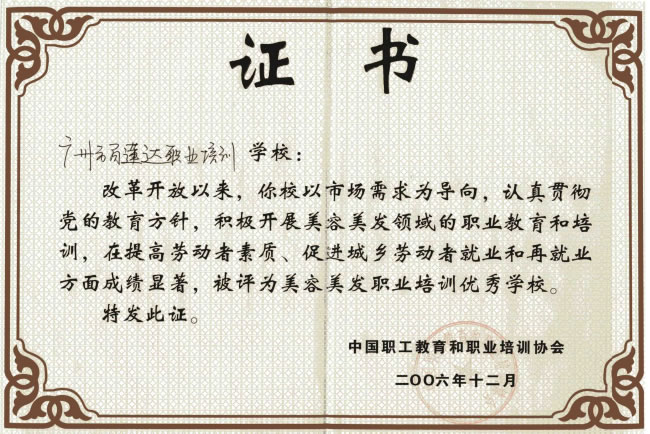 证 书
广州市蓬达职业培训 学校:
改革开放以来,你校以市场需求为导向,认真贯彻
党的教育方针,积极开展美容美发领域的职业教育和培
训,在提高劳动者素质、促进城乡劳动者就业和再就业
方面成绩显著,被评为美容美发职业培训优秀学校。
特发此证。
中国职工教育和职业培训协会
二〇〇六年十二月